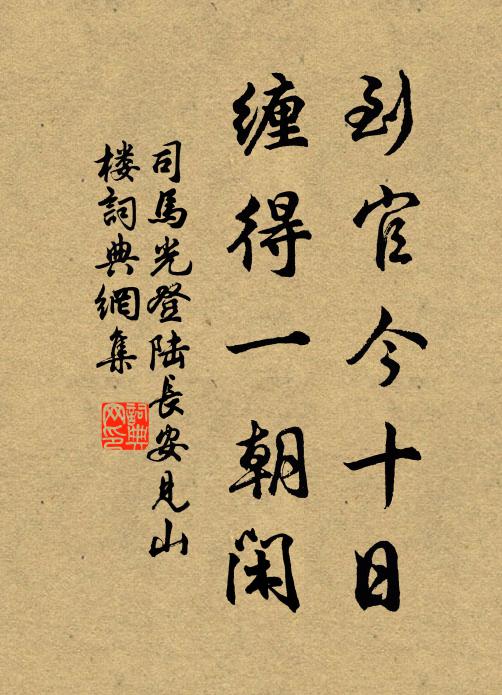 到官今十日
纏得一朝閑
司馬光登陸長安見山
楼詞典網集
詞典
网印